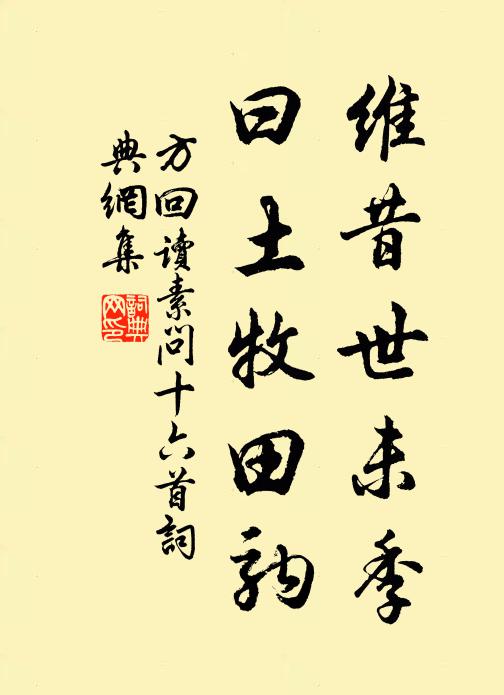 維昔世未季
曰土牧田
方回讀素問十六首詞
典網集
詞典
网印